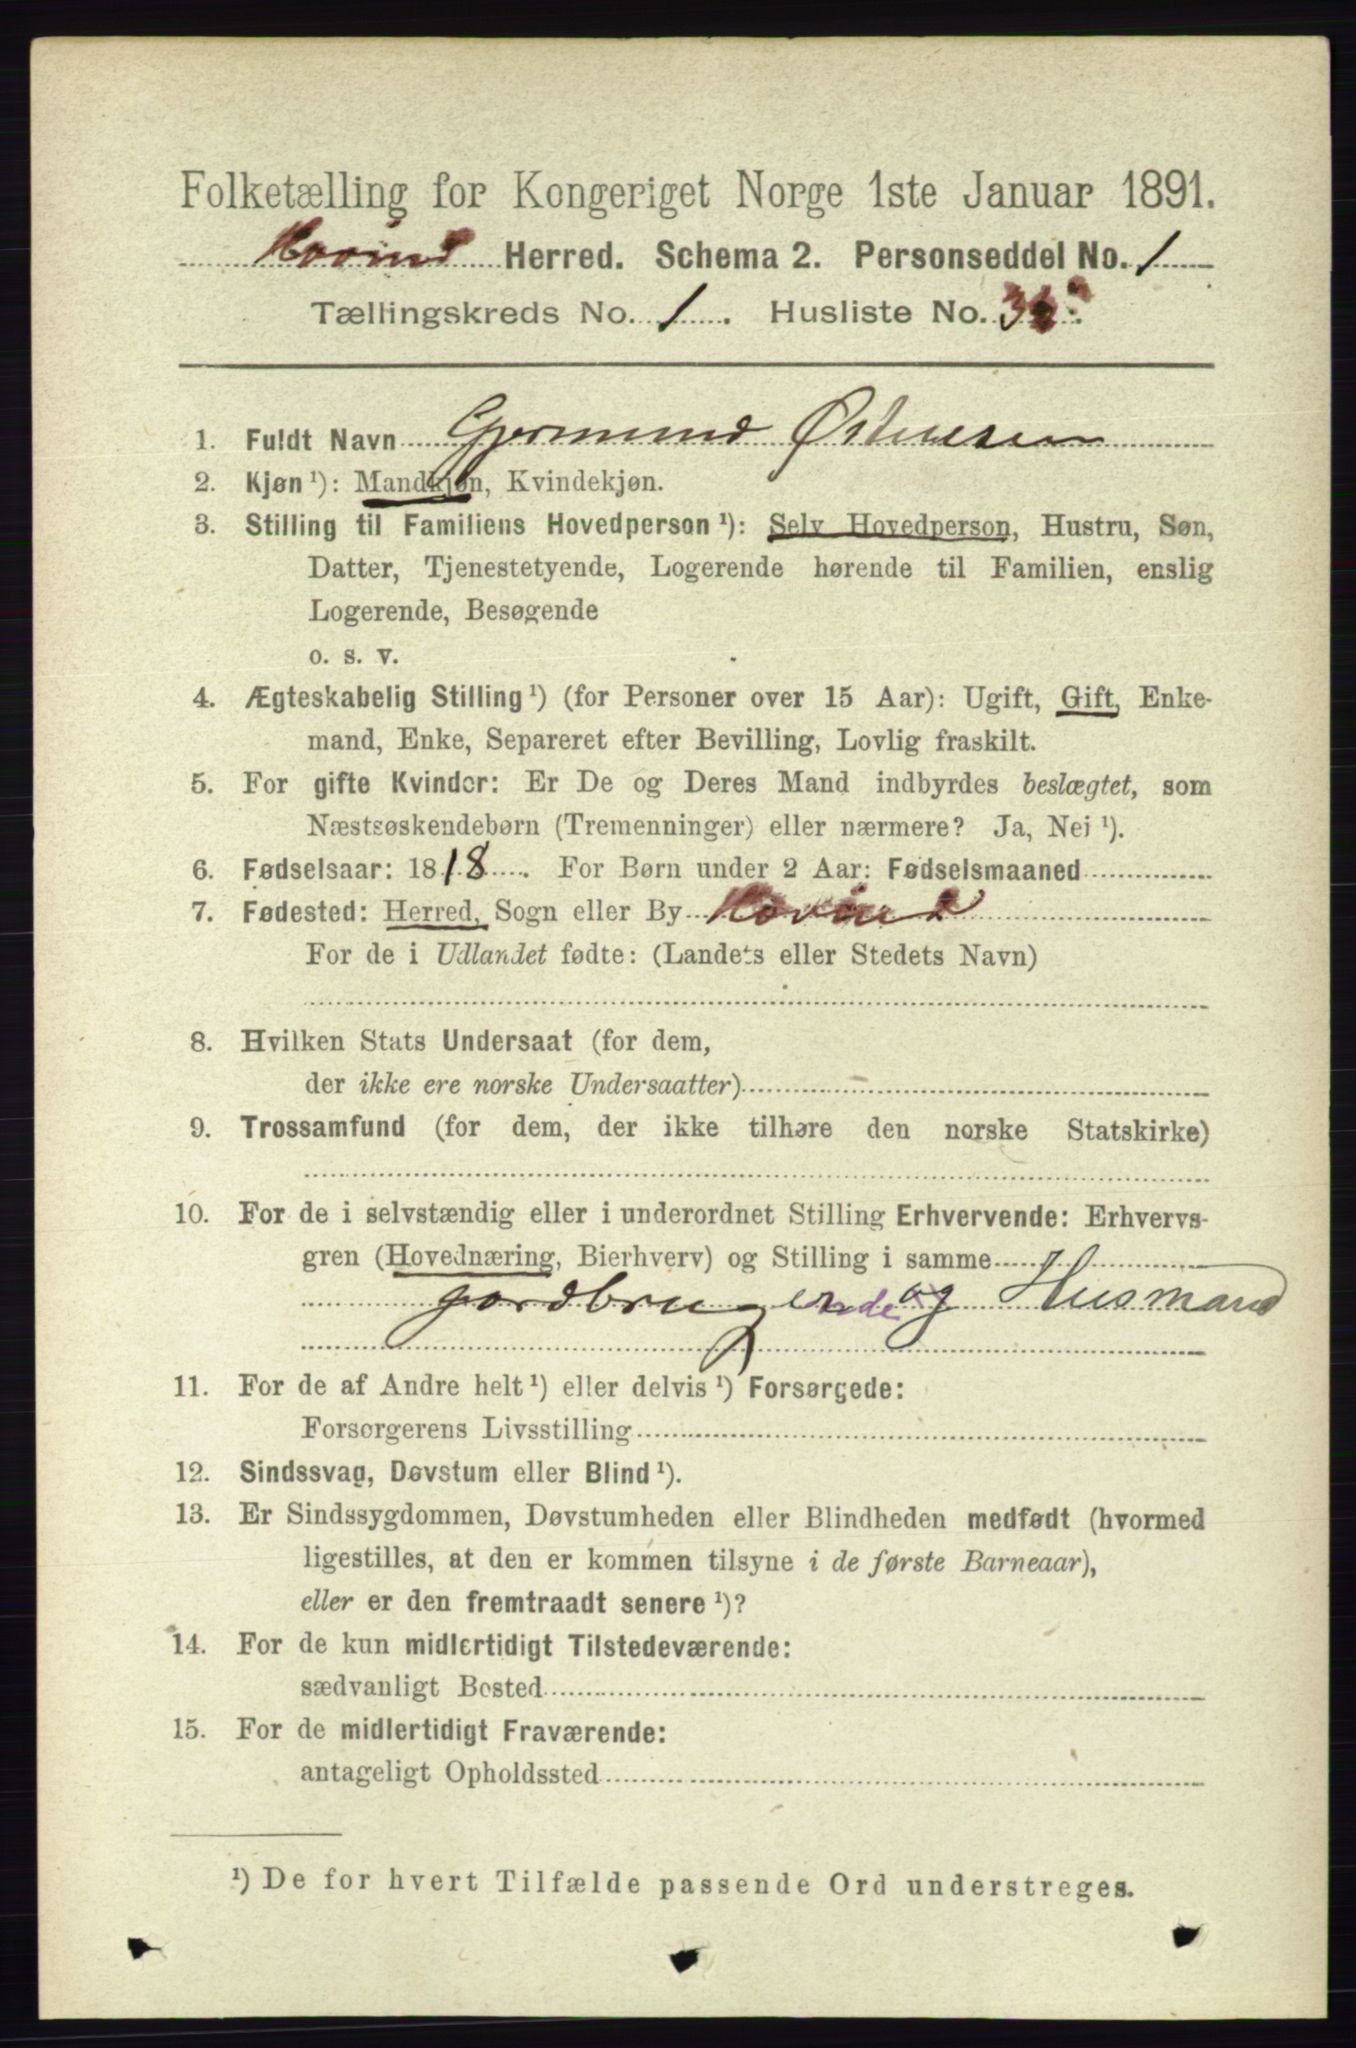 Folketælling for Kongeriget Norge 1ste Januar 1891.
Hovind Herred. Schema 2. Personseddel No. 1
Tællingskreds No. 1. Husliste No.
1. Fuldt Navn Gjermund Østensen
2. Kjøn ¹): Mandkjøn, Kvindekjøn.
3. Stilling til Familiens Hovedperson ¹): Selv Hovedperson, Hustru, Søn,
Datter, Tjenestetyende, Logerende hørende til Familien, enslig
Logerende, Besøgende
o. s. v.
4. Ægteskabelig Stilling ¹) (for Personer over 15 Aar): Ugift, Gift, Enke-
mand, Enke, Separeret efter Bevilling, Lovlig fraskilt.
5. For gifte Kvinder: Er De og Deres Mand indbyrdes beslægtet, som
Næstsøskendebørn (Tremenninger) eller nærmere? Ja, Nei ¹).
6. Fødselsaar: 1818. For Børn under 2 Aar: Fødselsmaaned
7. Fødested: Herred, Sogn eller By Hovind
For de i Udlandet fødte: (Landets eller Stedets Navn)
8. Hvilken Stats Undersaat (for dem,
der ikke ere norske Undersaatter)
9. Trossamfund (for dem, der ikke tilhøre den norske Statskirke)
10. For de i selvstændig eller i underordnet Stilling Erhvervende: Erhvervs-
gren (Hovednæring, Bierhverv) og Stilling i samme
jordbrugende og Husmand
11. For de af Andre helt ¹) eller delvis ¹) Forsørgede:
Forsørgerens Livsstilling
12. Sindssvag, Døvstum eller Blind ¹).
13. Er Sindssygdommen, Døvstumheden eller Blindheden medfødt (hvormed
ligestilles, at den er kommen tilsyne i de første Barneaar),
eller er den fremtraadt senere ¹)?
14. For de kun midlertidigt Tilstedeværende:
sædvanligt Bosted
15. For de midlertidigt Fraværende:
antageligt Opholdssted
¹) De for hvert Tilfælde passende Ord understreges.